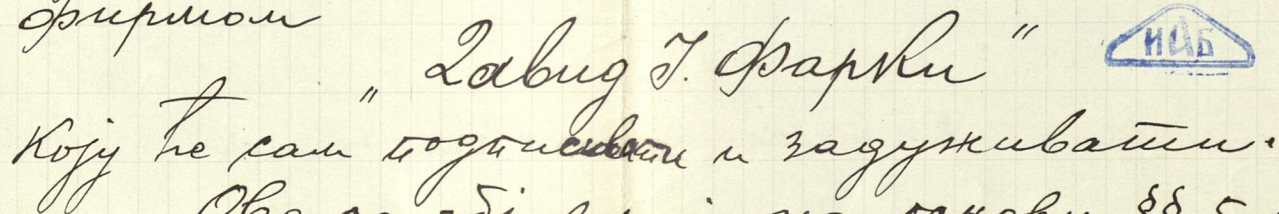 фирмом
„Давид Ј. Фарки“
ИАБ
коју ће сам подписивати и задуживати.
Ово на основу §§ 5